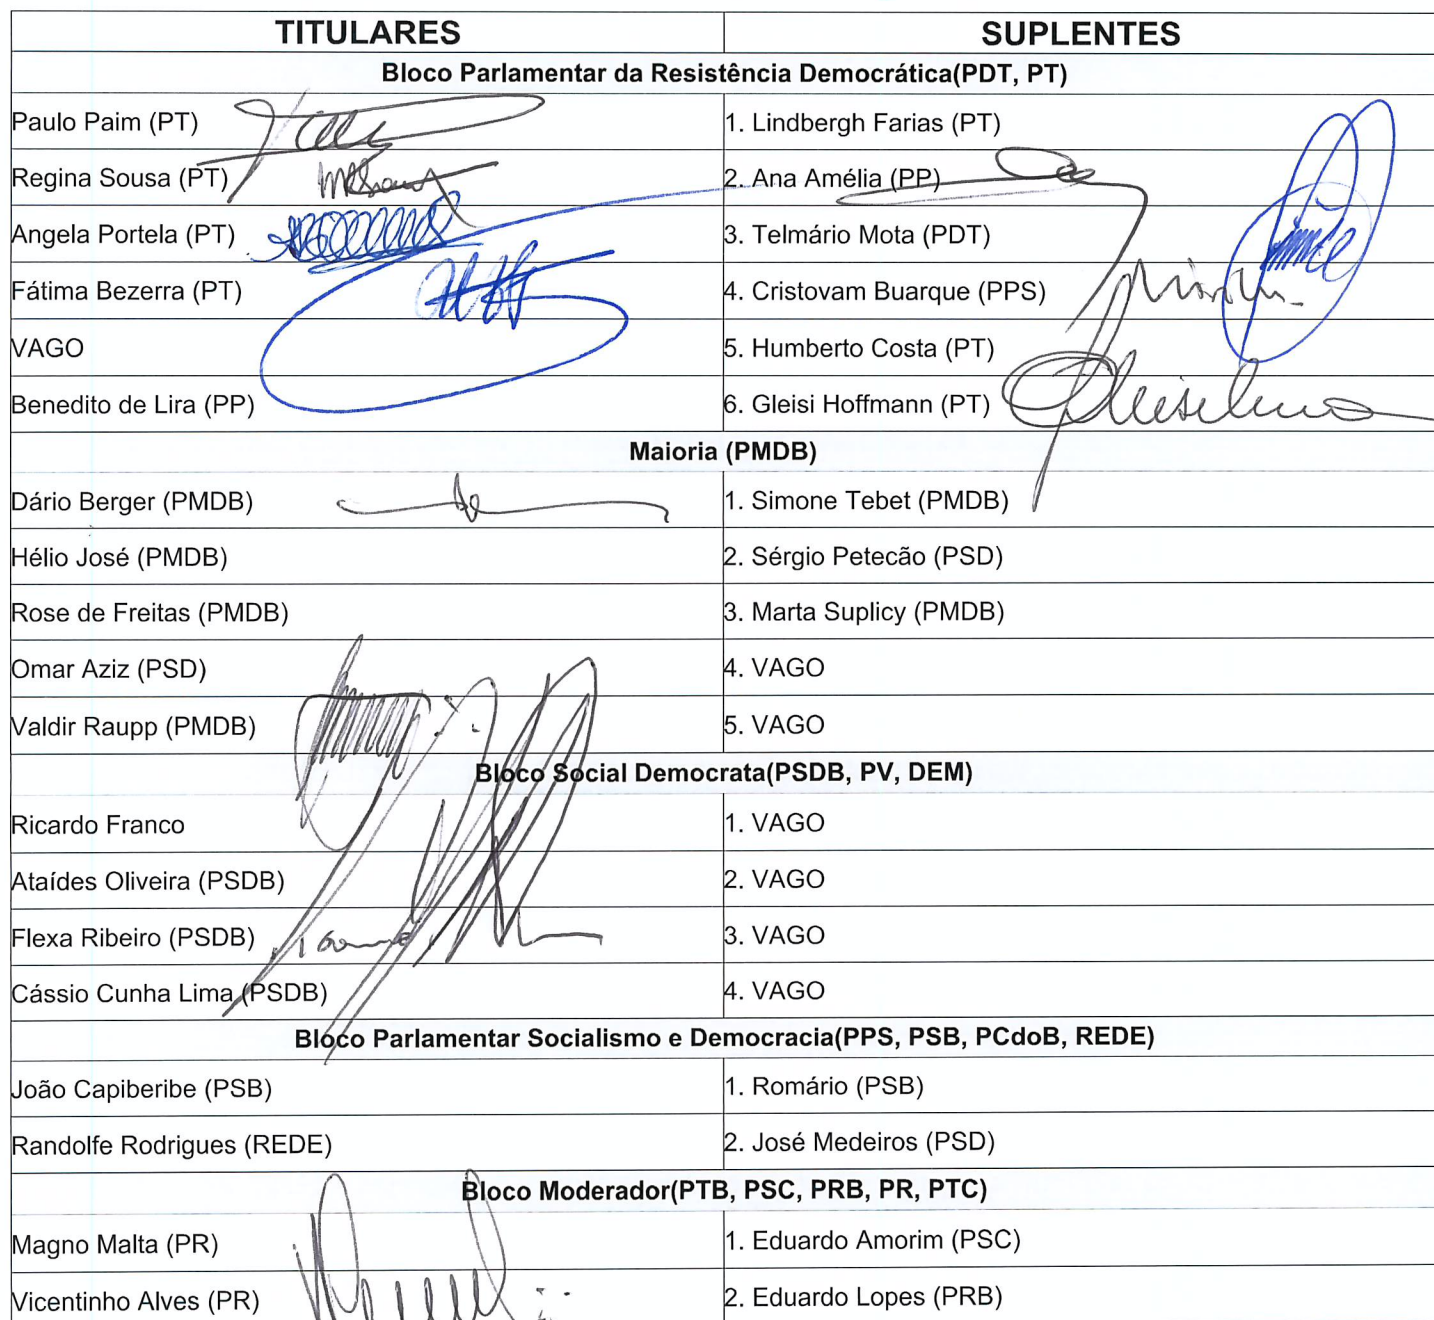 TITULARES SUPLENTES
Bloco Parlamentar da Resistência Democrática(PDT, PT)
Paulo Paim (PT) 1. Lindbergh Farias (PT)
Regina Sousa (PT) 2. Ana Amélia (PP)
Angela Portela (PT) 3. Telmário Mota (PDT)
Fátima Bezerra (PT) 4. Cristovam Buarque (PPS)
VAGO 5. Humberto Costa (PT)
Benedito de Lira (PP) 6. Gleisi Hoffmann (PT)
Maioria (PMDB)
Dário Berger (PMDB) 1. Simone Tebet (PMDB)
Hélio José (PMDB) 2. Sérgio Petecão (PSD)
Rose de Freitas (PMDB) 3. Marta Suplicy (PMDB)
Omar Aziz (PSD) 4. VAGO
Valdir Raupp (PMDB) 5. VAGO
Bloco Social Democrata(PSDB, PV, DEM)
Ricardo Franco 1. VAGO
Ataídes Oliveira (PSDB) 2. VAGO
Flexa Ribeiro (PSDB) 3. VAGO
Cássio Cunha Lima (PSDB) 4. VAGO
Bloco Parlamentar Socialismo e Democracia(PPS, PSB, PCdoB, REDE)
João Capiberibe (PSB) 1. Romário (PSB)
Randolfe Rodrigues (REDE) 2. José Medeiros (PSD)
Bloco Moderador(PTB, PSC, PRB, PR, PTC)
Magno Malta (PR) 1. Eduardo Amorim (PSC)
Vicentinho Alves (PR) 2. Eduardo Lopes (PRB)